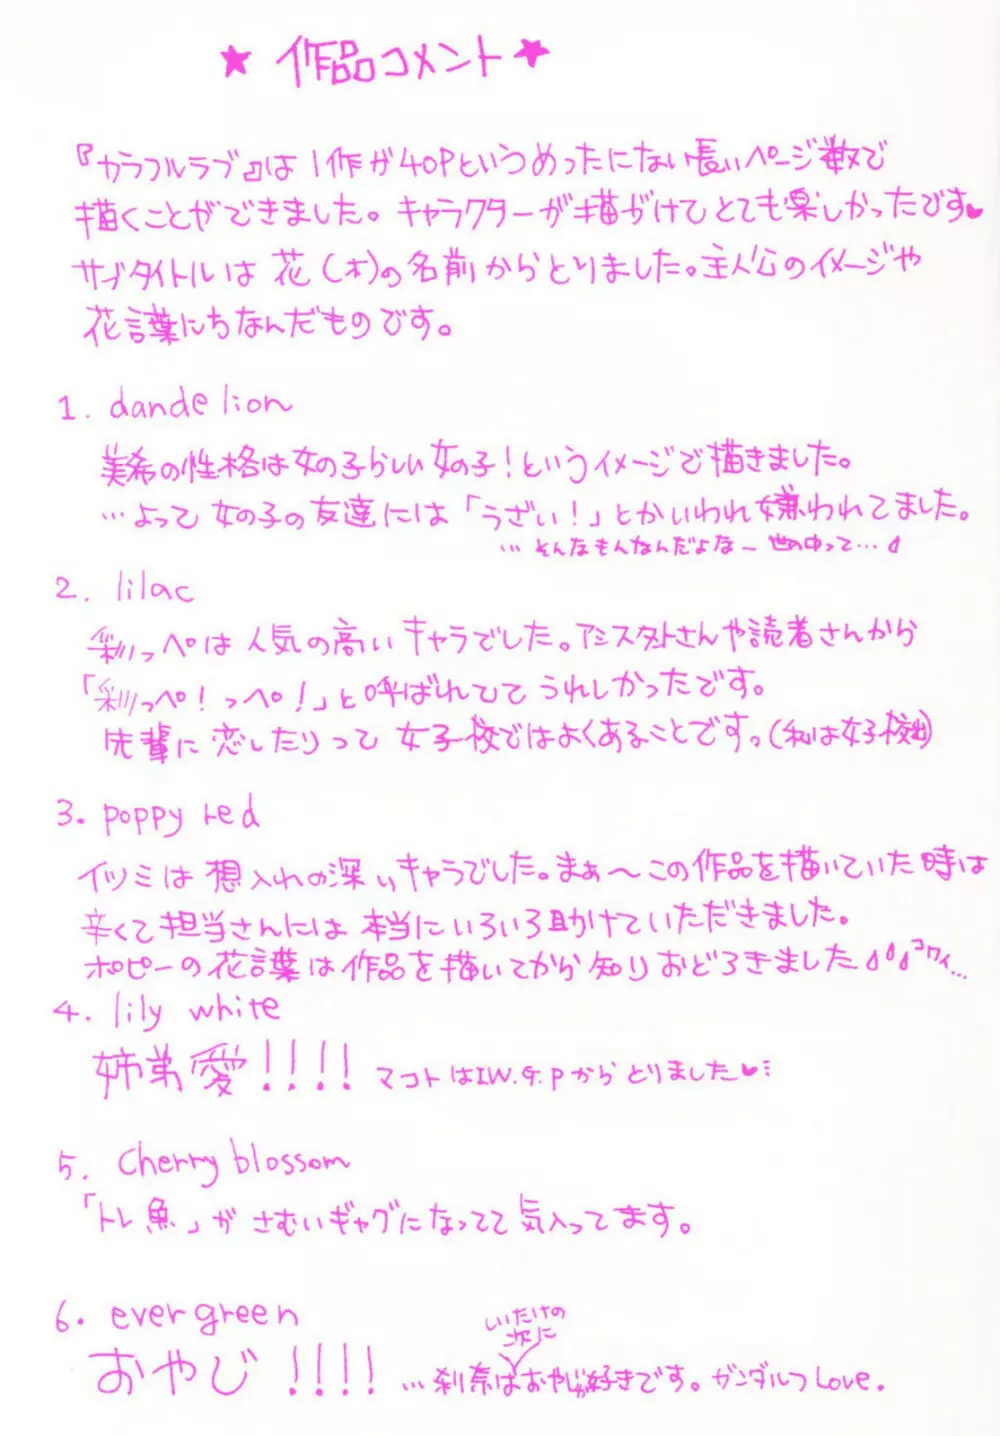 ★ 作品コメント ★
『カラフルラブ』は1作が40Pというめったにない長いページ数で
描くことができました。キャラクターが描づけてとても楽しかったです♥
サブタイトルは花(木)の名前からとりました。主人公のイメージや
花言葉にちなんだものです。
1. dandelion
美希の性格は女の子らしい女の子!というイメージで描きました。
…よって女の子の友達には「うざい!」とかいわれ嫌われてました。
…そんなもんなんだよな〜世の中って…
2. lilac
彩っぺは人気の高いキャラでした。アシスタントさんや読者さんから
「彩っぺ!っペ!」と呼ばれてて うれしかったです。
先輩に恋したりって女子校ではよくあることです。(私は女子校出)
3. poppy red
イツミは想入れの深いキャラでした。まぁ〜この作品を描いていた時は
辛くて担当さんには本当にいろいろ助けていただきました。
ポピーの花言葉は作品を描いてから知りおどろきました コワイ…
4. lily white
姉弟愛!!!! マコトはI.W.G.Pからとりました♥
5. Cherry blossom
「トレ魚」がさむいギャグになってて気入ってます。
6. evergreen
おやじ!!!! …刹奈はしいたけの次におやじが好きです。ガンダルフLove.